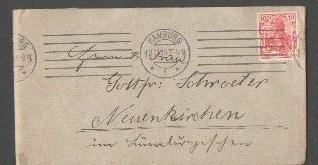 HAMBURG
10 10
Herrn & Frau
Gottfr: Schroeter
Neuenkirchen
im Lüneburgschen